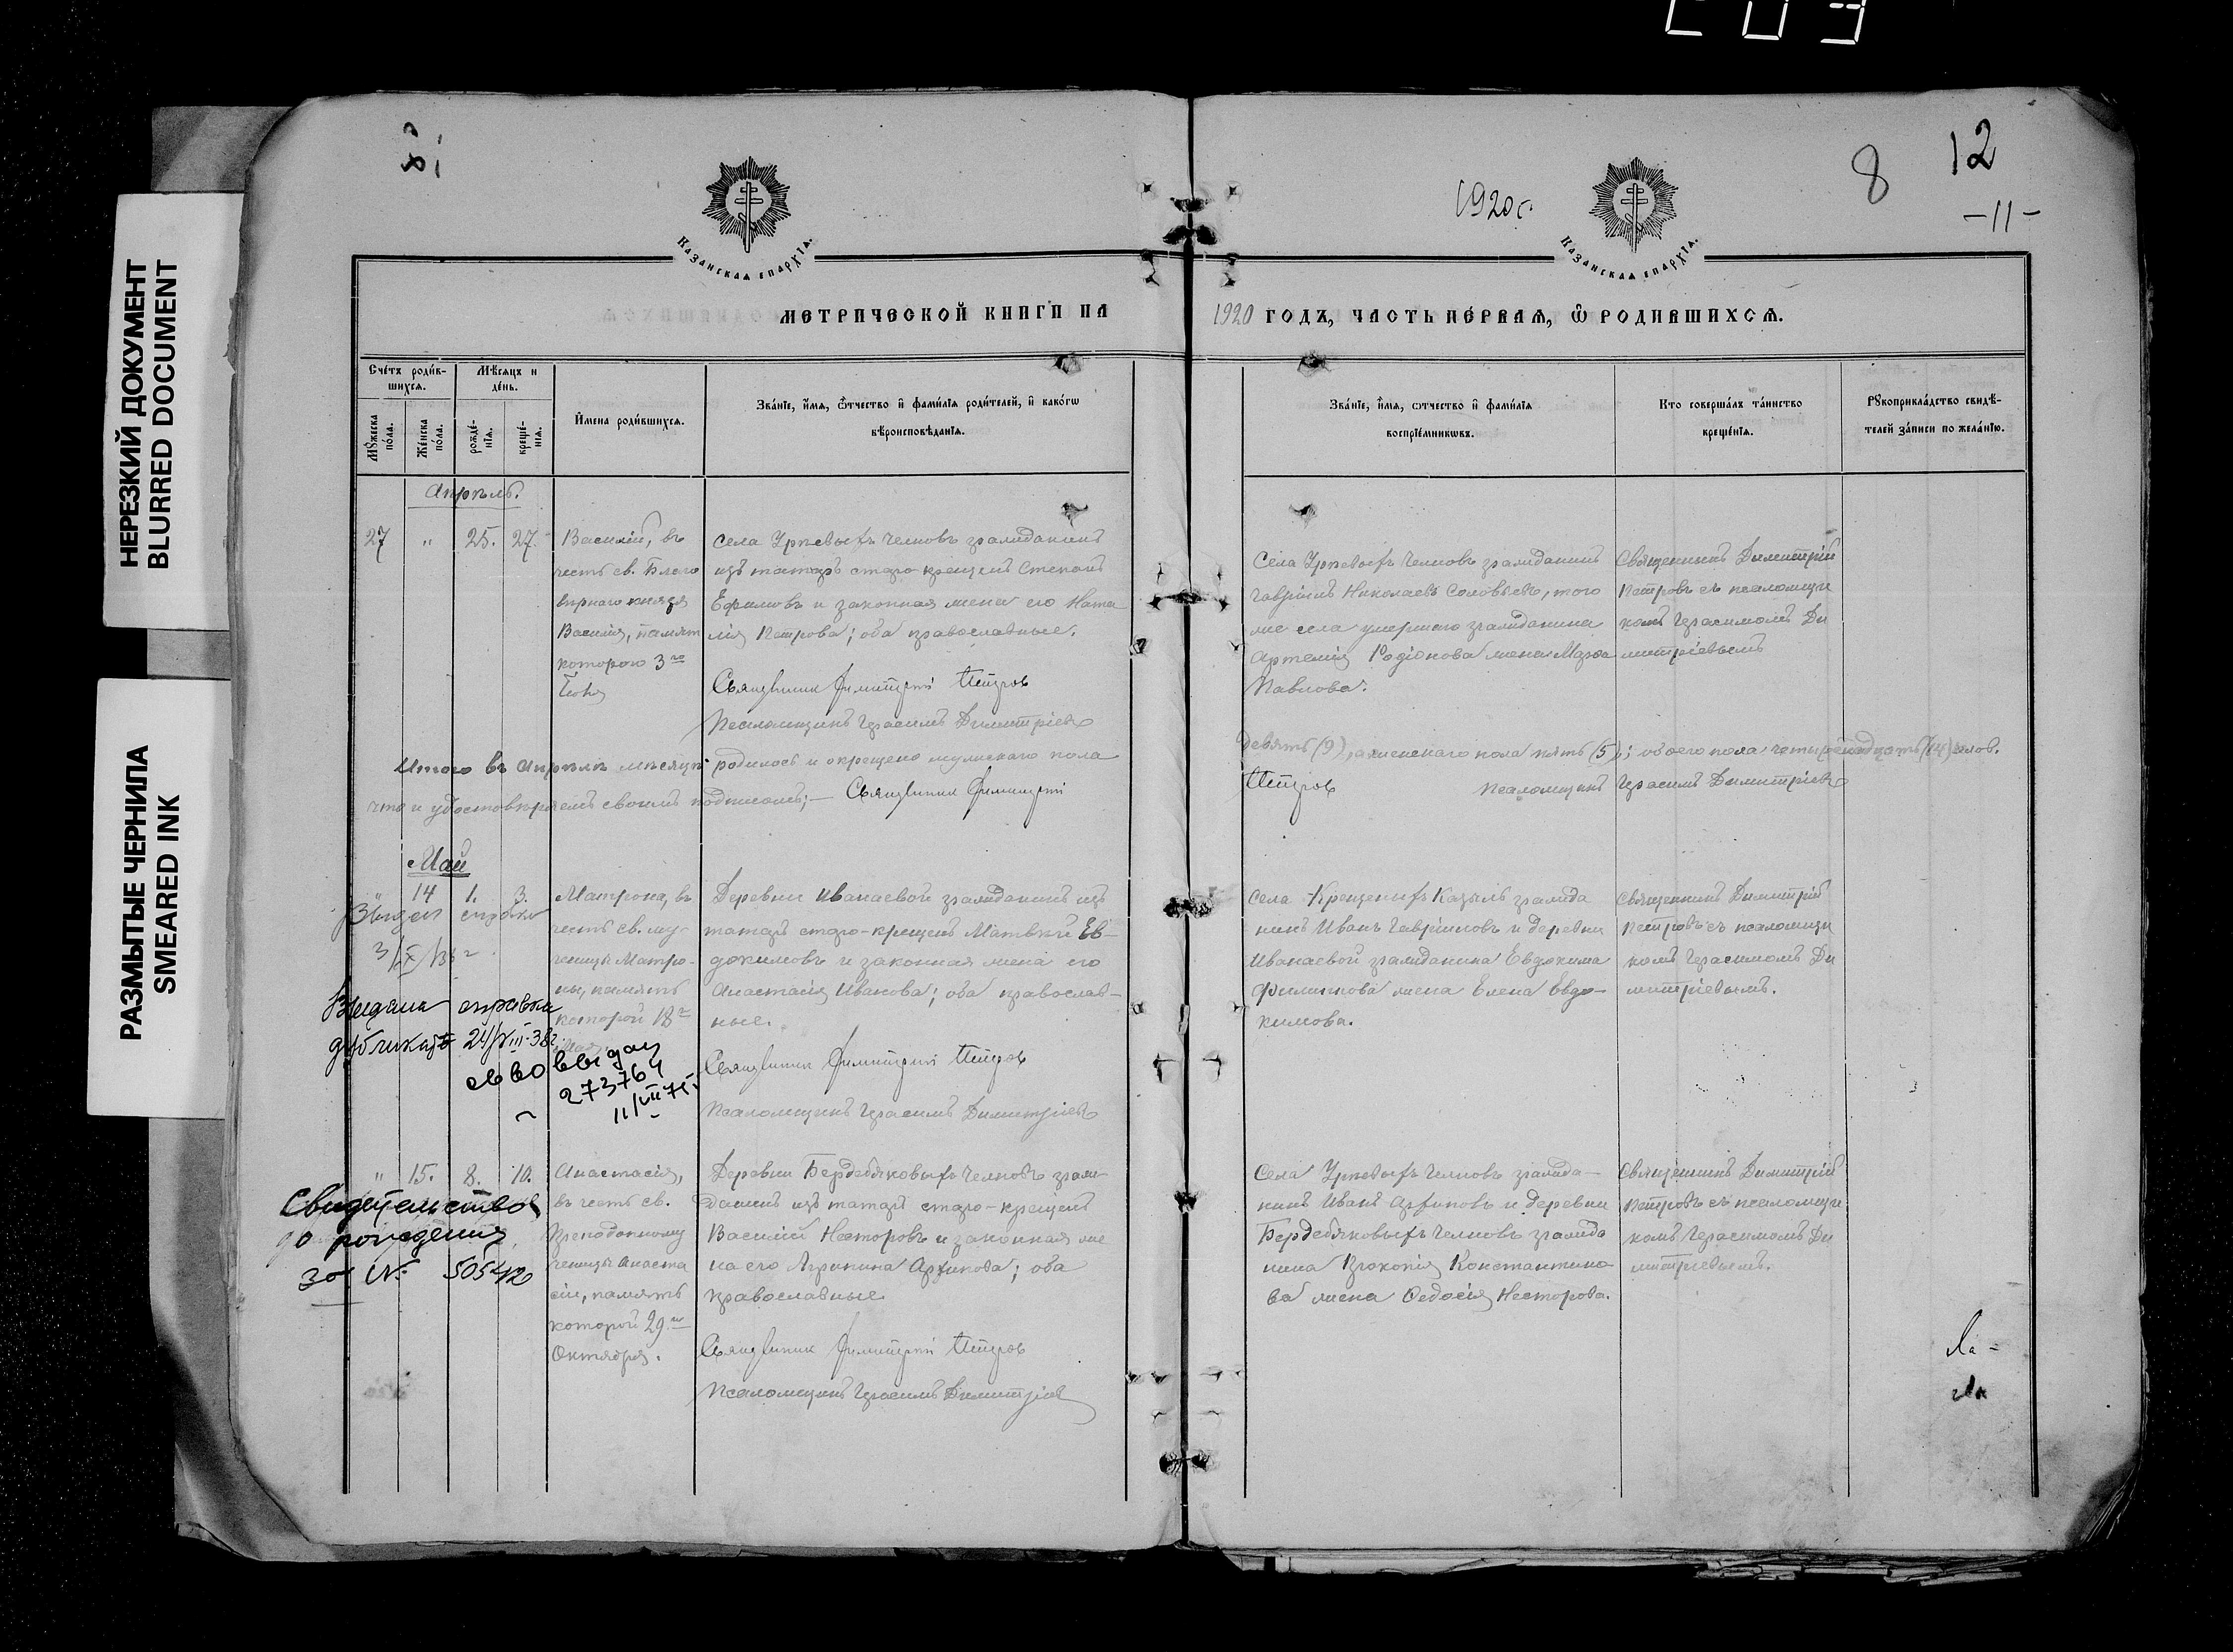 НЕРЕЗКИЙ ДОКУМЕНТ
BLURRED DOCUMENT
РАЗМЫТЫЕ ЧЕРНИЛА
SMEARED INK
1920 г.
8
12
-11-
КАЗАНСКАЯ ЕПАРХІЯ.
КАЗАНСКАЯ ЕПАРХІЯ.
МЕТРИЧЕСКОЙ КНИГИ НА
1920 ГОДЪ, ЧАСТЬ ПЕРВАЯ, Ѡ РОДИВШИХСЯ.
Счетъ родив-
шихся.
Мѣсяцъ и
день.
Мꙋжеска
пола.
Женска
пола.
рожде-
нія.
креще-
нія.
Имена родившихся.
Званіе, имя, ѿчество и фамилія родителей, и какогѡ
вѣроисповѣданія.
Званіе, имя, ѿчество и фамилія
воспріемникѡвъ.
Кто совершалъ таинство
крещенія.
Рꙋкоприкладство свидѣ-
телей записи по желанію.
Апрѣль.
27 " 25. 27.
Василій, въ
честь св. Благо
вѣрнаго князя
Василія, память
которого 3го
Іюля
села Урѣевыхъ Челновъ гражданинъ
изъ татаръ старо-крещенъ Степанъ
Ефимовъ и законная жена его Ната
лія Петрова; оба православные.
Священник Димитрий Петров
Псаломщикъ Герасимъ Димитріевъ
Села Урѣевыхъ Челновъ гражданинъ
Гавріилъ Николаевъ Соловьевъ, того
же села умершаго гражданина
Артемія Родіонова жена Марѳа
Павлова.
Священникъ Димитрій
Петровъ съ псаломщи
комъ Герасимомъ Ди
митріевымъ
Итого въ Апрѣлѣ мѣсяцѣ родилось и окрещено мужскаго пола
девять (9), а женскаго пола пять (5); обоего пола четырнадцать (14) челов.
что и удостовѣряемъ своимъ подписомъ;— Священник Димитрий
Петров Псаломщикъ Герасимъ Димитріевъ
Май
" 14 1. 3.
Матрона, въ
честь св. му-
ченицы Матро-
ны, память
которой 18го
Мая.
Деревни Иванаевой гражданинъ изъ
татаръ старо-крещенъ Матвѣй Ев-
докимовъ и законная жена его
Анастасія Иванова; оба православ-
ные.
Священник Димитрий Петров
Псаломщикъ Герасимъ Димитріевъ
Села Крещеныхъ Казыль гражда
нинъ Иванъ Гавріиловъ и деревни
Иванаевой гражданина Евдокима
Филиппова жена Елена Евдо-
кимова.
Священникъ Димитрій
Петровъ съ псаломщи
комъ Герасимомъ Ди
митріевымъ.
Выдана справка
дубликат 24/VIII-38г.
св во выдан
273764
11/VII 71г.
" 15. 8. 10.
Анастасія,
въ честь св.
Преподобному
ченицы Анаста
сіи, память
которой 29го
Октября.
Деревни Бердебяковыхъ Челновъ граж-
данинъ изъ татаръ старо-крещенъ
Василій Несторовъ и законная же
на его Агрипина Архипова; оба
православные
Священник Димитрий Петров
Псаломщикъ Герасимъ Димитріевъ
Села Урѣевыхъ Челновъ гражда-
нинъ Иванъ Архиповъ и деревни
Бердебяковыхъ Челновъ гражда
нина Прокопія Константино
ва жена Ѳедосія Несторова.
Священникъ Димитрій
Петровъ съ псаломщи
комъ Герасимомъ Ди
митріевымъ.
Свидетельство
о рождения
за №